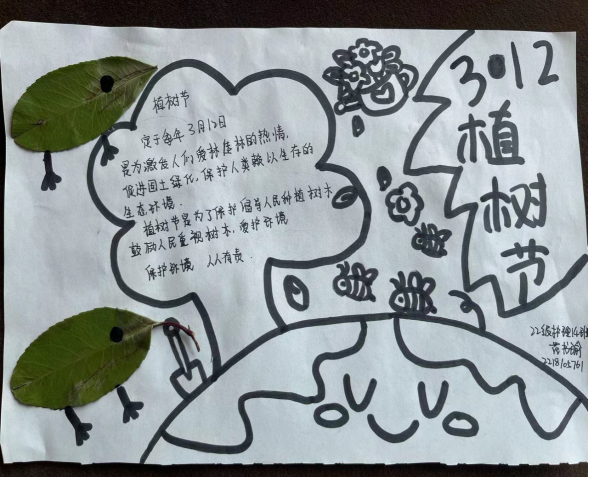 3·12
植树节
植树节
定于每年3月12日
是为激发人们爱林造林的热情.
促进国土绿化,保护人类赖以生存的
生态环境.
植树节是为了保护倡导人民种植树木
鼓励人民重视树木,爱护环境
保护环境 人人有责.
22级护理14班
2218105761